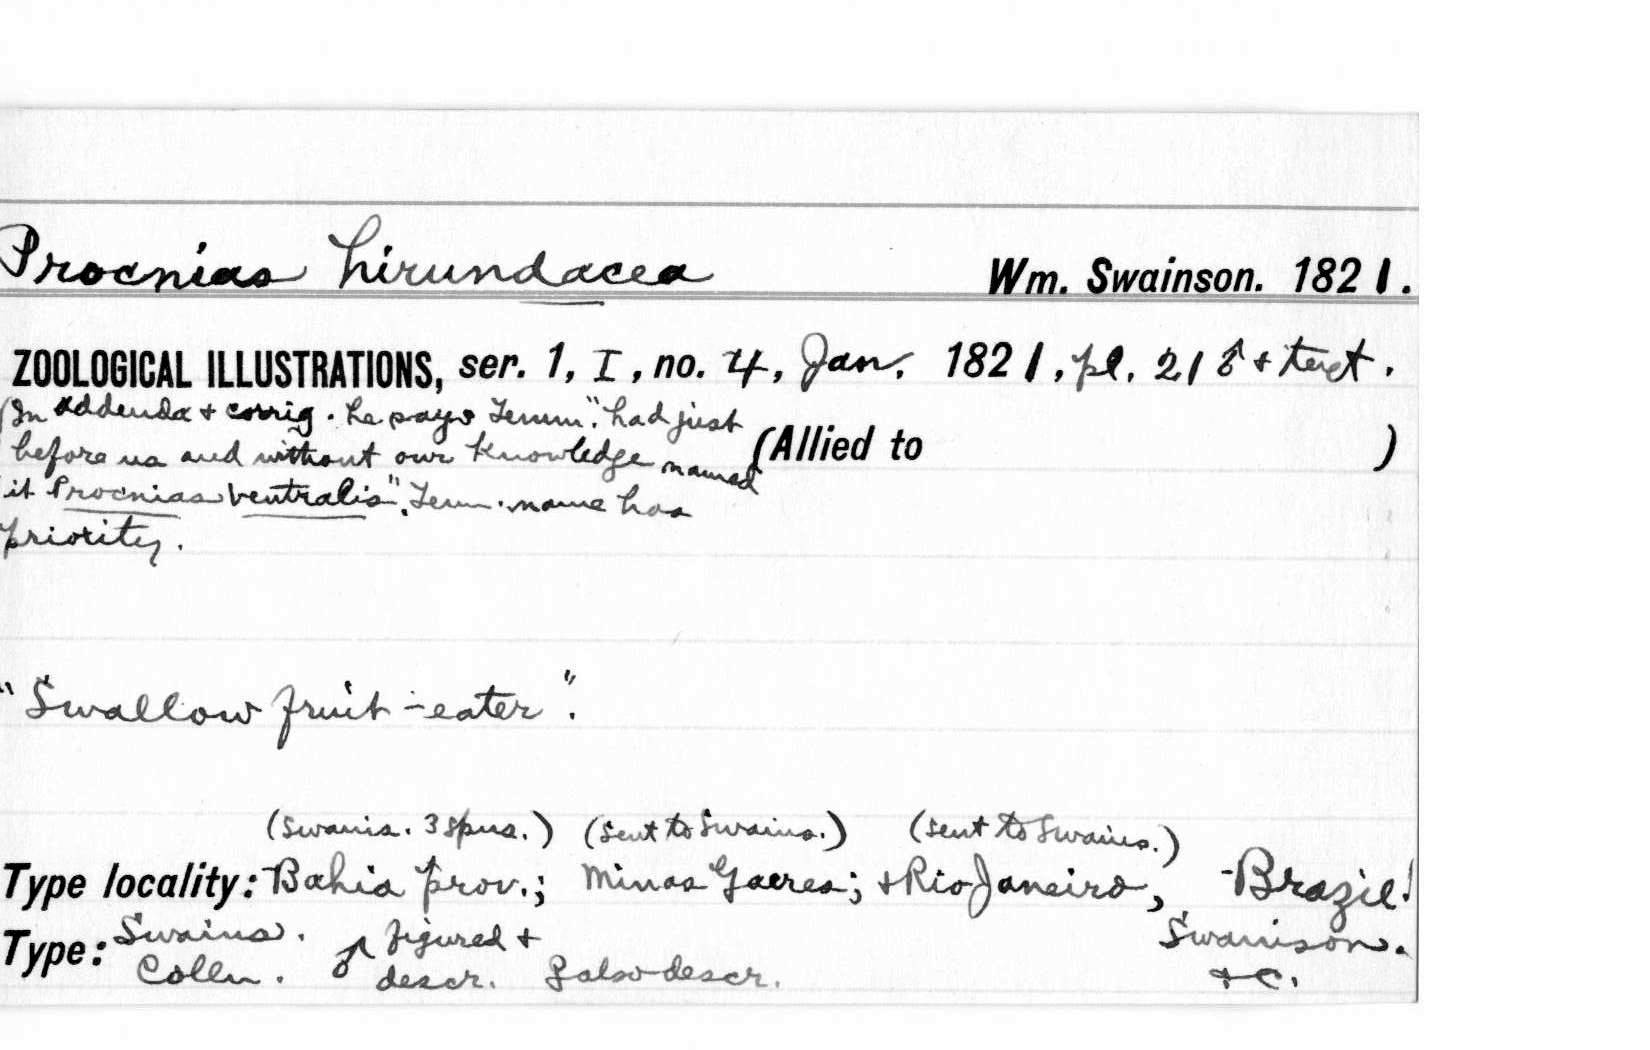 Procnias hirundacea Wm. Swainson. 1821.
ZOOLOGICAL ILLUSTRATIONS, ser. 1, I, no. 4, Jan. 1821, pl. 21 ♂ + text.
(In addenda + corrig. he says Temm. "had just
before us and without our knowledge named
it Procnias ventralis". Tem. name has
priority.
(Allied to )
"Swallow fruit-eater".
(Swains. 3 spns.) (sent to Swains.) (sent to Swains.)
Type locality: Bahia prov.; Minas Gaeres; + Rio Janeiro, -Brazil!
Type: Swains. Colln. ♂ figured + descr. ♀ also descr. Swainson. + C.